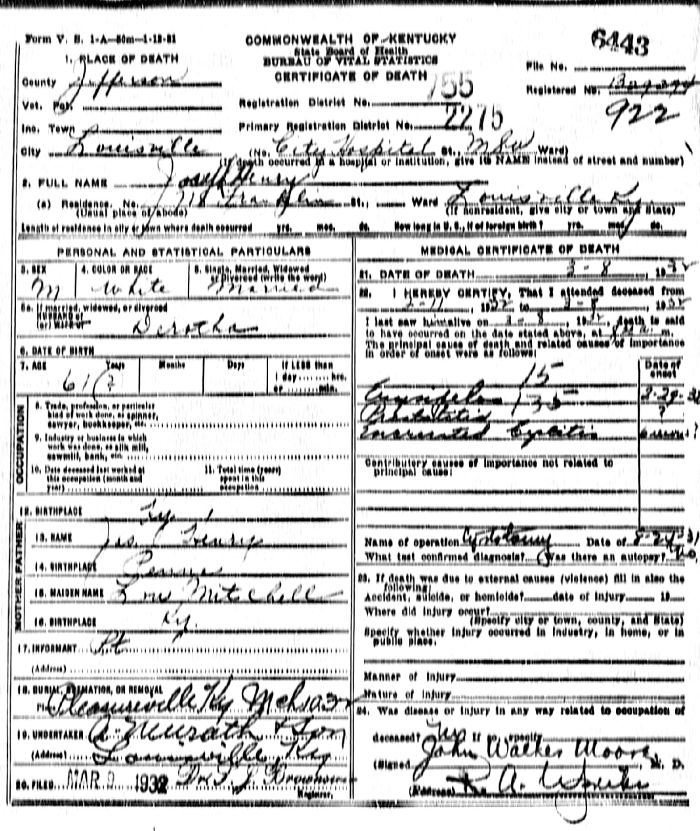 Form V. S. 1-A—50m—1-12-31
COMMONWEALTH OF KENTUCKY
State Board of Health
BUREAU OF VITAL STATISTICS
CERTIFICATE OF DEATH
6443
File No.
Registered No.
922
1. PLACE OF DEATH
County Jefferson
Vot. Pct.
Inc. Town
City Louisville
Registration District No. 755
Primary Registration District No. 2275
(No. City Hospital St., Ward)
(If death occurred in a hospital or institution, give its NAME instead of street and number)
2. FULL NAME Joseph Henry
(a) Residence. No. 718 Franklin St., Ward Louisville Ky.
(Usual place of abode) (If nonresident, give city or town and State)
Length of residence in city or town where death occurred yrs. mos. ds. How long in U. S., if of foreign birth? yrs. mos. ds.
PERSONAL AND STATISTICAL PARTICULARS
3. SEX 4. COLOR OR RACE 5. Single, Married, Widowed or Divorced (write the word)
M White Married
5a. If married, widowed, or divorced
HUSBAND of
(or) WIFE of Derotha
6. DATE OF BIRTH
7. AGE Years Months Days If LESS than
1 day hrs.
or min.
61 ?
OCCUPATION
8. Trade, profession, or particular
kind of work done, as spinner,
sawyer, bookkeeper, etc.
9. Industry or business in which
work was done, as silk mill,
sawmill, bank, etc.
10. Date deceased last worked at
this occupation (month and
year)
11. Total time (years)
spent in this
occupation
12. BIRTHPLACE Ky.
MOTHER FATHER
13. NAME Jas. Henry
14. BIRTHPLACE Penna
15. MAIDEN NAME Lou Mitchell
16. BIRTHPLACE Ky.
17. INFORMANT Pt
(Address)
18. BURIAL, CREMATION, OR REMOVAL
Pleasureville Ky
19. UNDERTAKER & Son
(Address) Louisville, Ky
20. FILED MAR 9 1932
Registrar.
MEDICAL CERTIFICATE OF DEATH
21. DATE OF DEATH 3 - 8 1932
22. I HEREBY CERTIFY, That I attended deceased from
1932 to 3 - 8 1932
I last saw him alive on 3 - 8 1932 death is said
to have occurred on the date stated above, at m.
The principal cause of death and related causes of importance
in order of onset were as follows:
Date of
onset
15
Erysipelas 135
Prostatitis ?
Cystitis
Contributory causes of importance not related to
principal cause:
Name of operation Cystotomy Date of
What test confirmed diagnosis? Was there an autopsy? No
23. If death was due to external causes (violence) fill in also the
following:
Accident, suicide, or homicide? date of injury 19
Where did injury occur?
(Specify city or town, county, and State)
Specify whether injury occurred in industry, in home, or in
public place.
Manner of Injury
Nature of Injury
24. Was disease or injury in any way related to occupation of
deceased? No If so, specify
(Signed) John Walker Moore, M. D.
(Address)